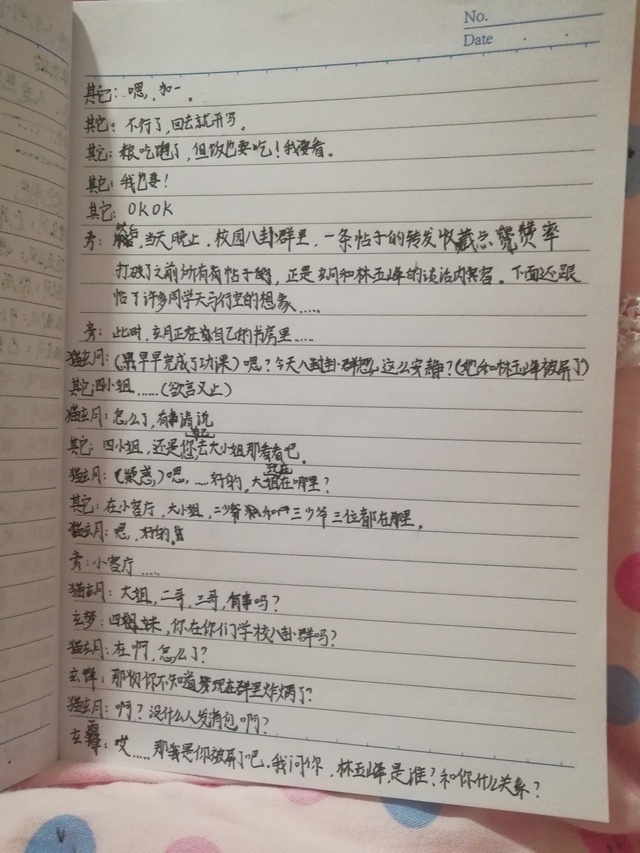 No.
Date
其它：嗯，加一。
其它：不行了，回去就开写。
其它：粮吃饱了，但饭也要吃！我要看。
其它：我也要！
其它：OKOK
旁：当天晚上，校园八卦群里，一条帖子的转发收藏点赞率
打破了之前所有帖子的，正是玄月和林玉峰的谈话内容。下面还跟
帖了许多同学天马行空的想象……
旁：此时，玄月正在自己的书房里……
猫玄月：（早早完成了功课）嗯？今天八卦小群怎么这么安静？（她和林玉峰被屏了）
其它：四小姐……（欲言又止）
猫玄月：怎么了，有事请说
其它：四小姐，还是您自己去大小姐那看看吧。
猫玄月：（疑惑）嗯，……好的。大姐现在在哪里？
其它：在小客厅，大小姐，二少爷和三少爷三位都在那里。
猫玄月：嗯，好的。
旁：小客厅……
猫玄月：大姐，二哥，三哥，有事吗？
玄梦：四妹，你在你们学校八卦群吗？
猫玄月：在啊，怎么了？
玄：那你不知道现在群里炸锅了？
猫玄月：啊？没什么人发消息啊？
玄霜：哎……那我是你被屏了吧。我问你，林玉峰，是谁？和你什么关系？